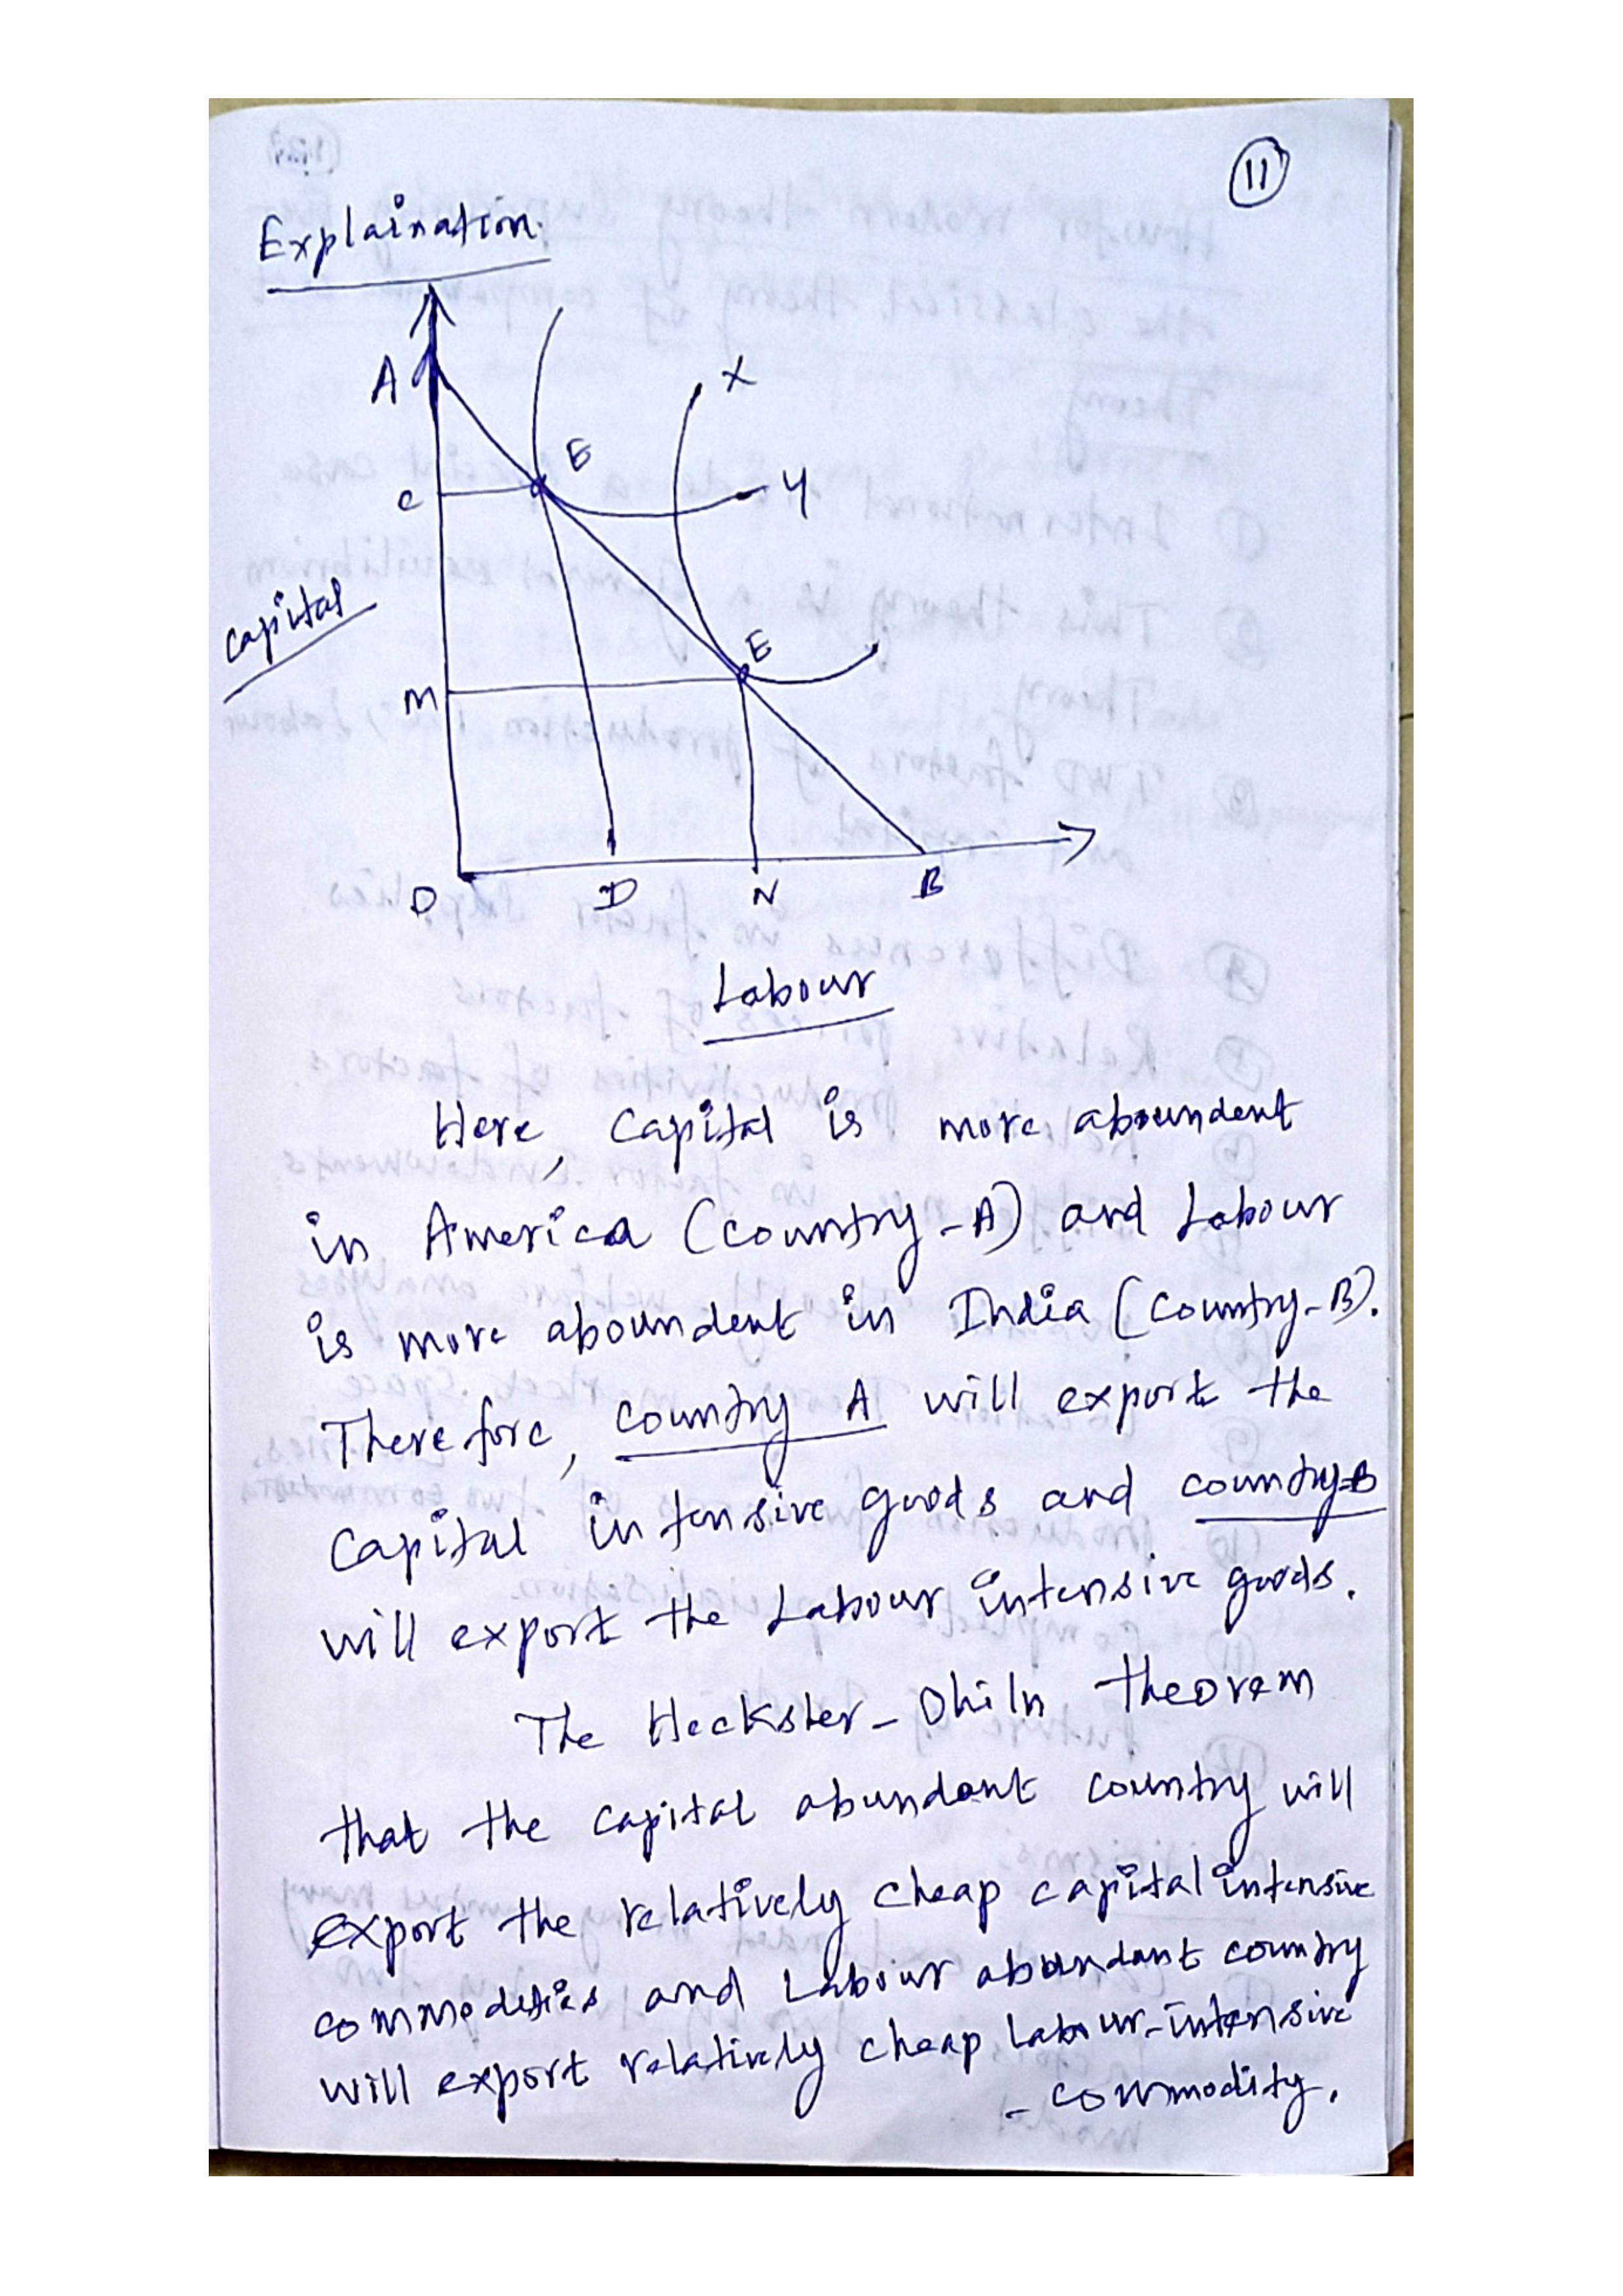 11
Explaination.
A
X
E
C
Y
capital
E
M
O
D
N
B
Labour
Here, Capital is more aboundent
in America (country-A) and Labour
is more aboundent in India (country-B).
Therefore, country A will export the
Capital intensive goods and country-B
will export the Labour intensive goods.
The Heckster-Ohiln theorem
that the capital abundant country will
export the relatively cheap capital intensive
commodities and Labour abundant country
will export relatively cheap labour-intensive
- commodity.